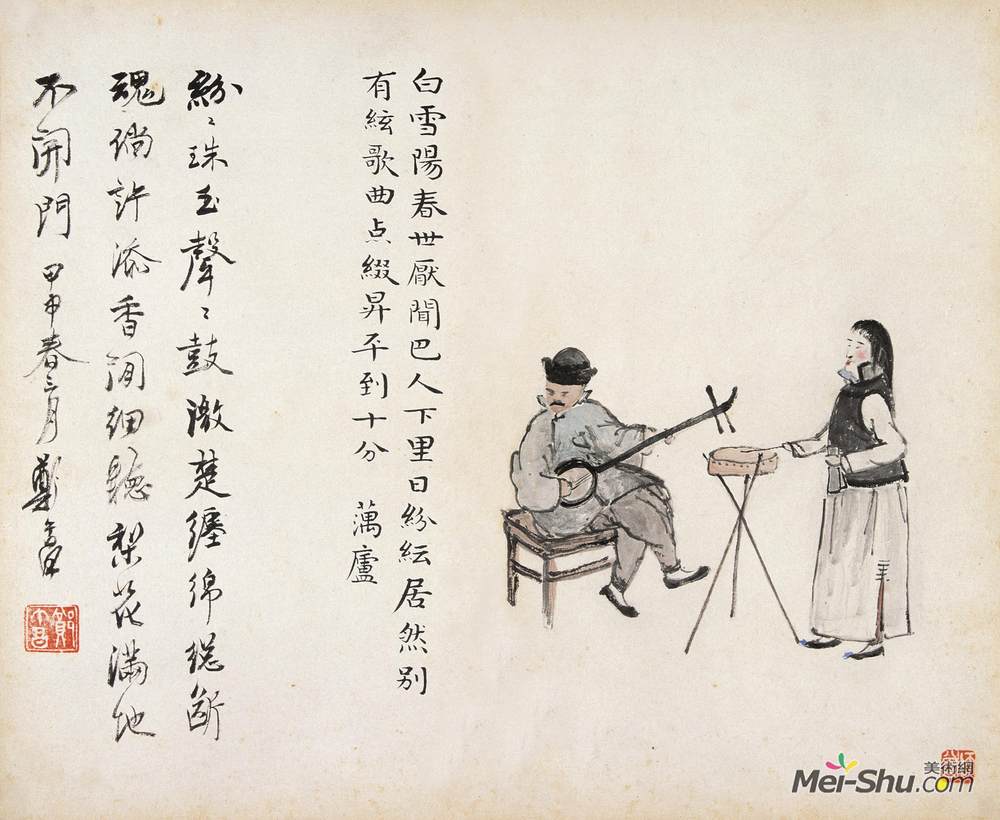 白雪陽春世厭聞巴人下里日紛紜居然别
有絃歌曲点綴昇平到十分 蕅廬
紛〻珠玉聲〻鼓激楚纏綿總斷
魂倘許添香閒細聽梨花滿地
不開門 甲申春三月鄭
美術網
Mei-Shu.com